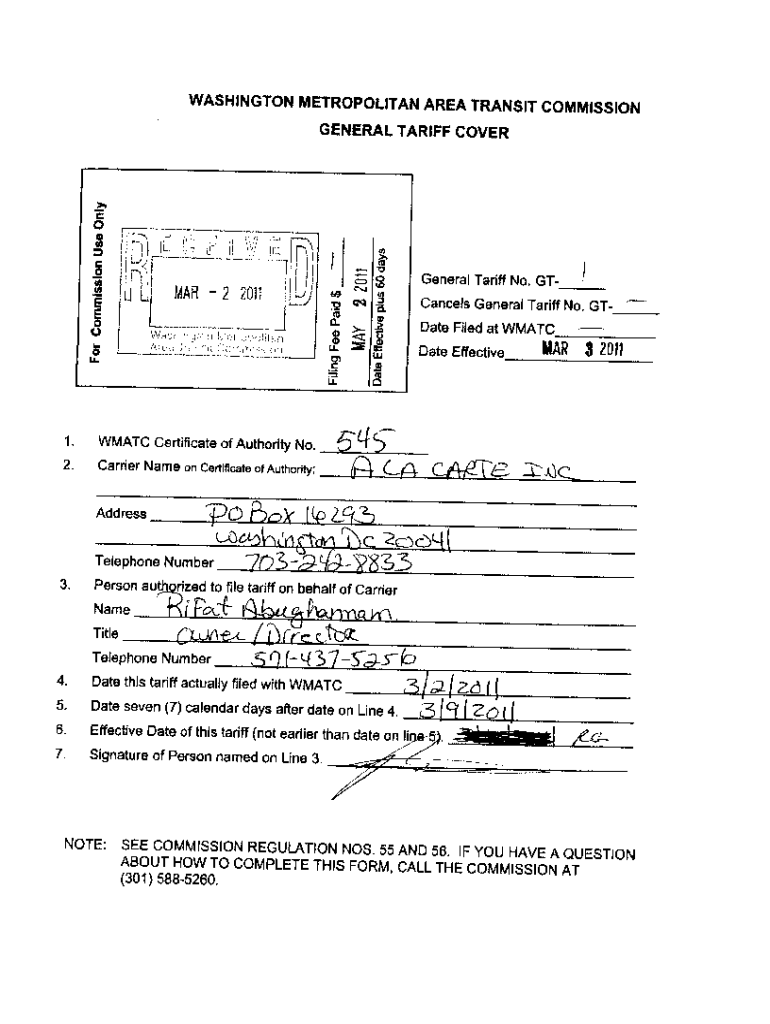 WASHINGTON METROPOLITAN AREA TRANSIT COMMISSION
GENERAL TARIFF COVER
For Commission Use Only
RECEIVED
MAR - 2 2011
Washington Metropolitan
Area Transit Commission
Filing Fee Paid $
MAY 2 2011
Date Effective plus 60 days
General Tariff No. GT- 1
Cancels General Tariff No. GT- —
Date Filed at WMATC —
Date Effective MAR 3 2011
1. WMATC Certificate of Authority No. 545
2. Carrier Name on Certificate of Authority: A LA CARTE INC
Address PO Box 16293
Washington DC 20041
Telephone Number 703-242-8833
3. Person authorized to file tariff on behalf of Carrier
Name Rifat Abughannam
Title Owner/Director
Telephone Number 571-437-5256
4. Date this tariff actually filed with WMATC 3/2/2011
5. Date seven (7) calendar days after date on Line 4. 3/9/2011
6. Effective Date of this tariff (not earlier than date on line 5). RG
7. Signature of Person named on Line 3.
NOTE: SEE COMMISSION REGULATION NOS. 55 AND 56. IF YOU HAVE A QUESTION
ABOUT HOW TO COMPLETE THIS FORM, CALL THE COMMISSION AT
(301) 588-5260.